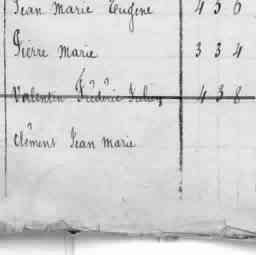 Jean Marie Eugène 4 3 6
Pierre Marie 3 3 4
Valentin Frédéric Julien 4 3 8
Clément Jean Marie